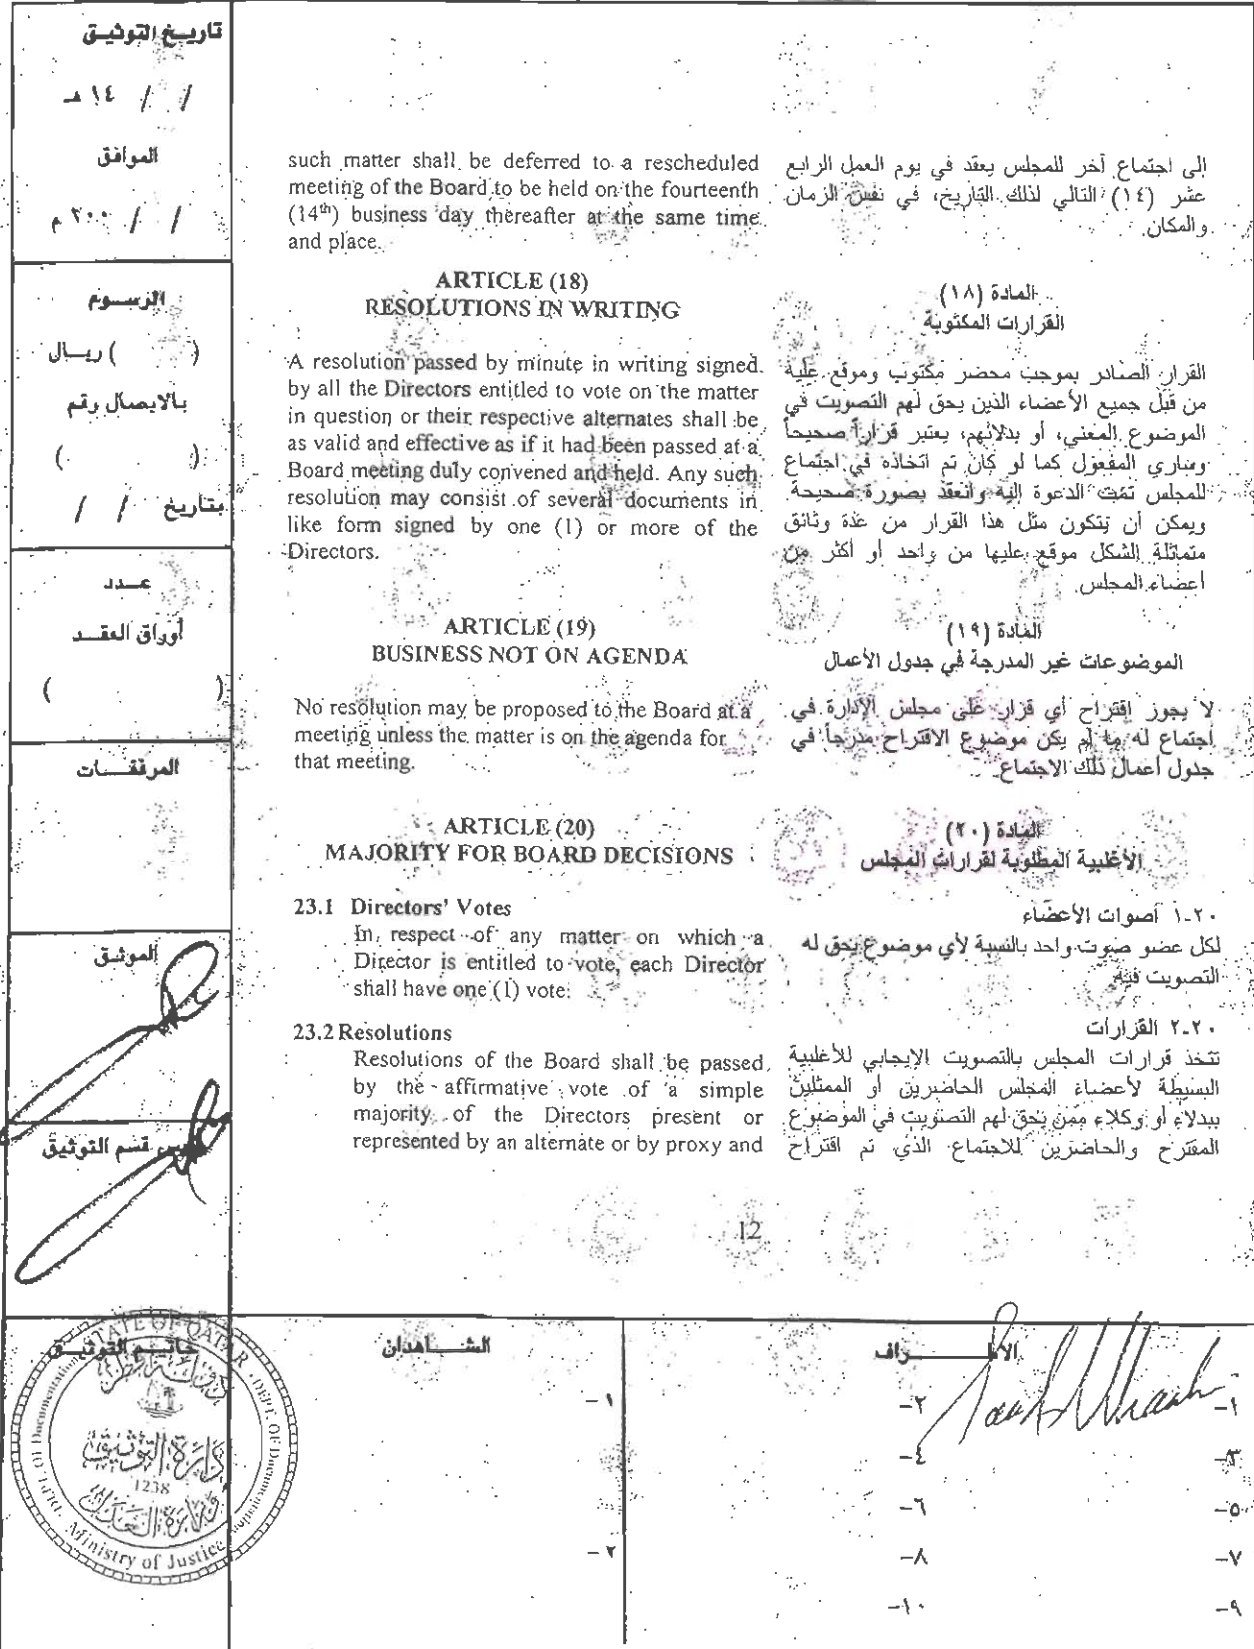 تاريخ التوثيق
/ / ١٤ هـ
الموافق
/ / ٢٠٠ م
الرسوم
( ) ريال
بالايصال رقم
( )
بتاريخ / /
عدد
أوراق العقد
( )
المرفقات
الموثق
قسم التوثيق
such matter shall be deferred to a rescheduled
meeting of the Board to be held on the fourteenth
(14th) business day thereafter at the same time
and place.
ARTICLE (18)
RESOLUTIONS IN WRITING
A resolution passed by minute in writing signed
by all the Directors entitled to vote on the matter
in question or their respective alternates shall be
as valid and effective as if it had been passed at a
Board meeting duly convened and held. Any such
resolution may consist of several documents in
like form signed by one (1) or more of the
Directors.
ARTICLE (19)
BUSINESS NOT ON AGENDA
No resolution may be proposed to the Board at a
meeting unless the matter is on the agenda for
that meeting.
ARTICLE (20)
MAJORITY FOR BOARD DECISIONS
23.1 Directors' Votes
In respect of any matter on which a
Director is entitled to vote, each Director
shall have one (1) vote.
23.2 Resolutions
Resolutions of the Board shall be passed
by the affirmative vote of a simple
majority of the Directors present or
represented by an alternate or by proxy and
الى اجتماع آخر للمجلس يعقد في يوم العمل الرابع
عشر (١٤) التالي لذلك التاريخ، في نفس الزمان
والمكان.
المادة (١٨)
القرارات المكتوبة
القرار الصادر بموجب محضر مكتوب وموقع عليه
من قبل جميع الأعضاء الذين يحق لهم التصويت في
الموضوع المعني، أو بدلائهم، يعتبر قراراً صحيحاً
وساري المفعول كما لو كان تم اتخاذه في اجتماع
للمجلس تمت الدعوة إليه وانعقد بصورة صحيحة.
ويمكن أن يتكون مثل هذا القرار من عدة وثائق
متماثلة الشكل موقع عليها من واحد أو أكثر من
أعضاء المجلس.
المادة (١٩)
الموضوعات غير المدرجة في جدول الأعمال
لا يجوز اقتراح أي قرار على مجلس الإدارة في
اجتماع له ما لم يكن موضوع الاقتراح مدرجاً في
جدول أعمال ذلك الاجتماع.
المادة (٢٠)
الأغلبية المطلوبة لقرارات المجلس
٢٠-١ أصوات الأعضاء
لكل عضو صوت واحد بالنسبة لأي موضوع يحق له
التصويت فيه.
٢٠-٢ القرارات
تتخذ قرارات المجلس بالتصويت الإيجابي للأغلبية
البسيطة لأعضاء المجلس الحاضرين أو الممثلين
ببدلاء أو وكلاء ممن يحق لهم التصويت في الموضوع
المقترح والحاضرين للاجتماع الذي تم اقتراح
12
خاتم التوثيق
STATE OF QATAR
DEPT. OF Documentation
دولة قطر
إدارة التوثيق
1238
وزارة العدل
Ministry of Justice
DEPT. OF Documentation
الشاهدان
١-
٢-
الاطراف
١- ٢-
٣- ٤-
٥- ٦-
٧- ٨-
٩- ١٠-